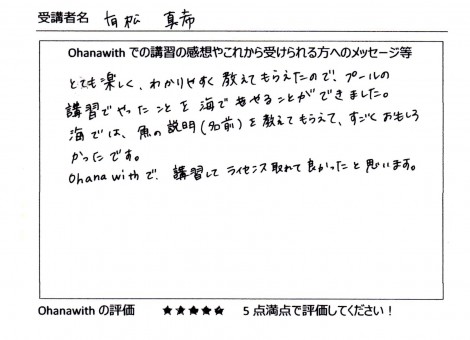 受講者名 有松 真希
Ohanawith での講習の感想やこれから受けられる方へのメッセージ等
とても楽しく、わかりやすく教えてもらえたので、プールの
講習でやったことを海で活せることができました。
海では、魚の説明(名前)を教えてもらえて、すごくおもしろ
かったです。
Ohana withで、講習して ライセンス取れて良かったと思います。
Ohanawith の評価 ★★★★★ 5 点満点で評価してください！